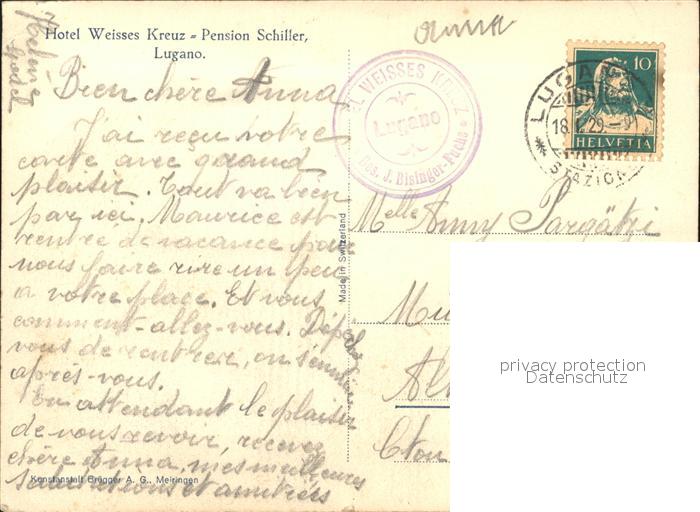 Hotel Weisses Kreuz = Pension Schiller,
Lugano.
Helene
Bien chère Anna
J'ai reçu votre
carte avec grand
plaisir. Tout va bien
par ici. Maurice est
rentré de vacance pour
nous faire rire un peu
a votre place. Et vous
comment-allez-vous. Dépêchez
vous de rentrer, on s'ennuie
après-vous.
En attendant le plaisir
de vous revoir, recevez
chère Anna, mes meilleures
salutations et amitiés
Kunstanstalt Brügger A. G., Meiringen
Made in Switzerland
H. WEISSES KREUZ
Lugano
Bes. J. Bisinger-Fuchs
10
HELVETIA
LUGANO
18. 29.
STAZIONE
Melle Anny Sargätzi
privacy protection
Datenschutz
Cton